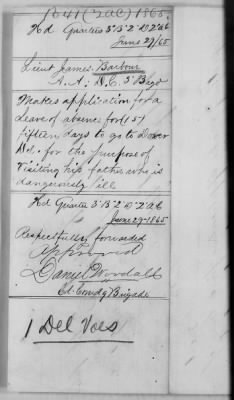 1641 (2 AC) 1865.
Hd Quarters 3' B' 2' D' 2' A C
June 29/65
Lieut James Barbour
A. A. D. C. 3' Brig
Makes application for a
Leave of absence for (15)
fifteen days to go to Dover
Del. for the purpose of
Visiting his father who is
dangerously ill
Hd Quarters 3' B' 2' D' 2' A C
June 29-1865
Respectfully forwarded
Approved
Daniel Woodall
Col. Comdg Brigade
1 Del Vols